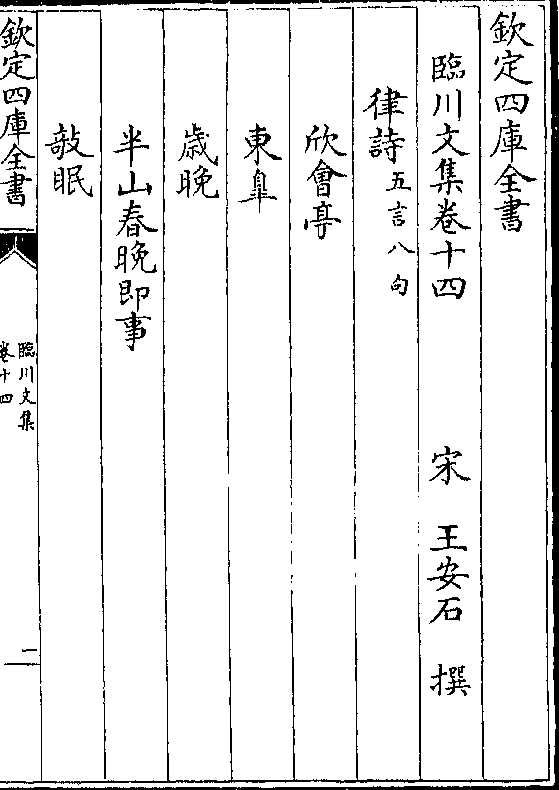 欽定四庫全書
臨川文集卷十四　宋　王安石　撰
律詩五言八句
欣會亭
東臯
歲晚
半山春晚即事
欹眠
欽定四庫全書
臨川文集
卷十四
二